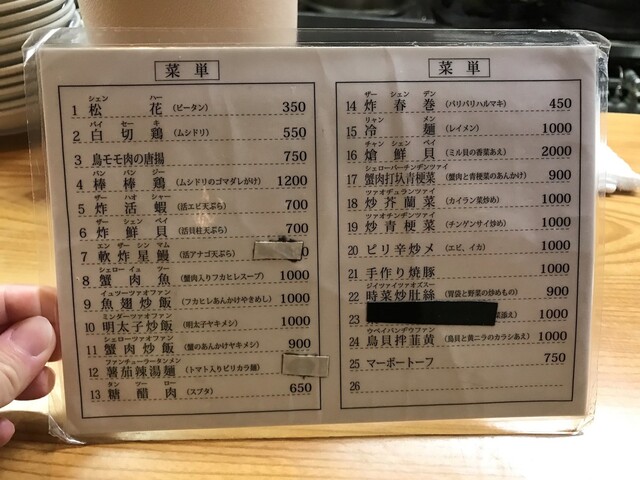 菜単
シェン ハー
1 松花 (ピータン) 350
パイ セー キ
2 白切鶏 (ムシドリ) 550
3 鳥モモ肉の唐揚 750
パン パン ジー
4 棒棒鶏 (ムシドリのゴマダレがけ) 1200
ザー ハオ シャー
5 炸活蝦 (活エビ天ぷら) 700
ザー シェン ペイ
6 炸鮮貝 (活貝柱天ぷら) 700
エン ザー シン マム
7 軟炸星鰻 (活アナゴ天ぷら) 0
シェロー イュ ツー
8 蟹肉魚 (蟹肉入りフカヒレスープ) 1000
イュツーツァオファン
9 魚翅炒飯 (フカヒレあんかけやきめし) 1000
ミンダーツァオファン
10 明太子炒飯 (明太子ヤキメシ) 1000
シェローツァオファン
11 蟹肉炒飯 (蟹のあんかけヤキメシ) 900
ファンチューラータンメン
12 薯茄辣湯麺 (トマト入りピリカラ麺)
タン ツー ロー
13 糖醋肉 (スブタ) 650
菜単
ザー シェン デン
14 炸春巻 (パリパリハルマキ) 450
リャン メン
15 冷麺 (レイメン) 1000
チャン シェン ペイ
16 熗鮮貝 (ミル貝の香菜あえ) 2000
シェローパーチンデンツァイ
17 蟹肉打圦青梗菜 (蟹肉と青梗菜のあんかけ) 900
ツァオデュランツァイ
18 炒芥蘭菜 (カイラン菜炒め) 1000
ツァオチンデンツァイ
19 炒青梗菜 (チンゲンサイ炒め) 1000
20 ピリ辛炒メ (エビ、イカ) 1000
21 手作り焼豚 1000
ジイツァイツァオズース
22 時菜炒肚絲 (胃袋と野菜の炒めもの) 900
23 菜添え) 1000
ウペイバンヂウファン
24 鳥貝拌韮黄 (鳥貝と黄ニラのカラシあえ) 1000
25 マーボートーフ 750
26